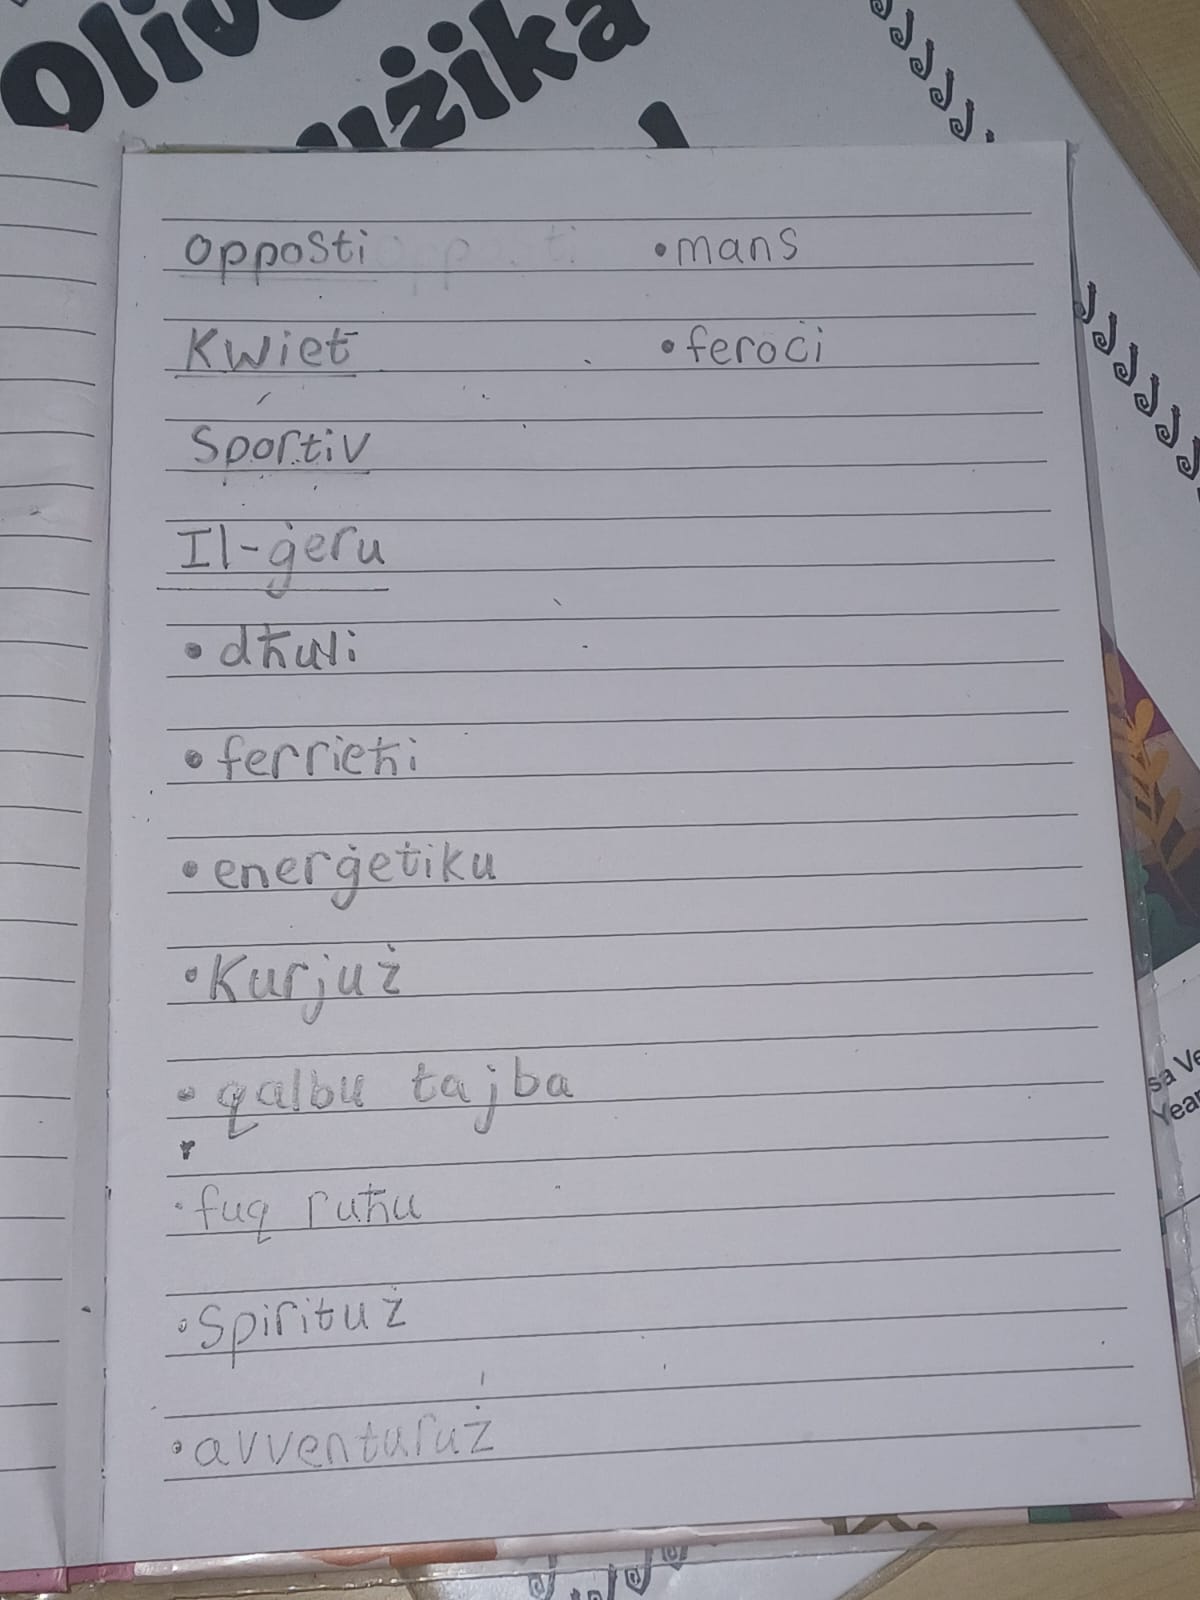 Oliv
użika
opposti
Kwiet
Sportiv
Il-ġeru
• dħuli
• ferrieħi
• enerġetiku
• Kurjuż
• qalbu tajba
• fuq ruħu
• Spirituż
• avventuruż
• mans
• feroċi
sa Ve
Year